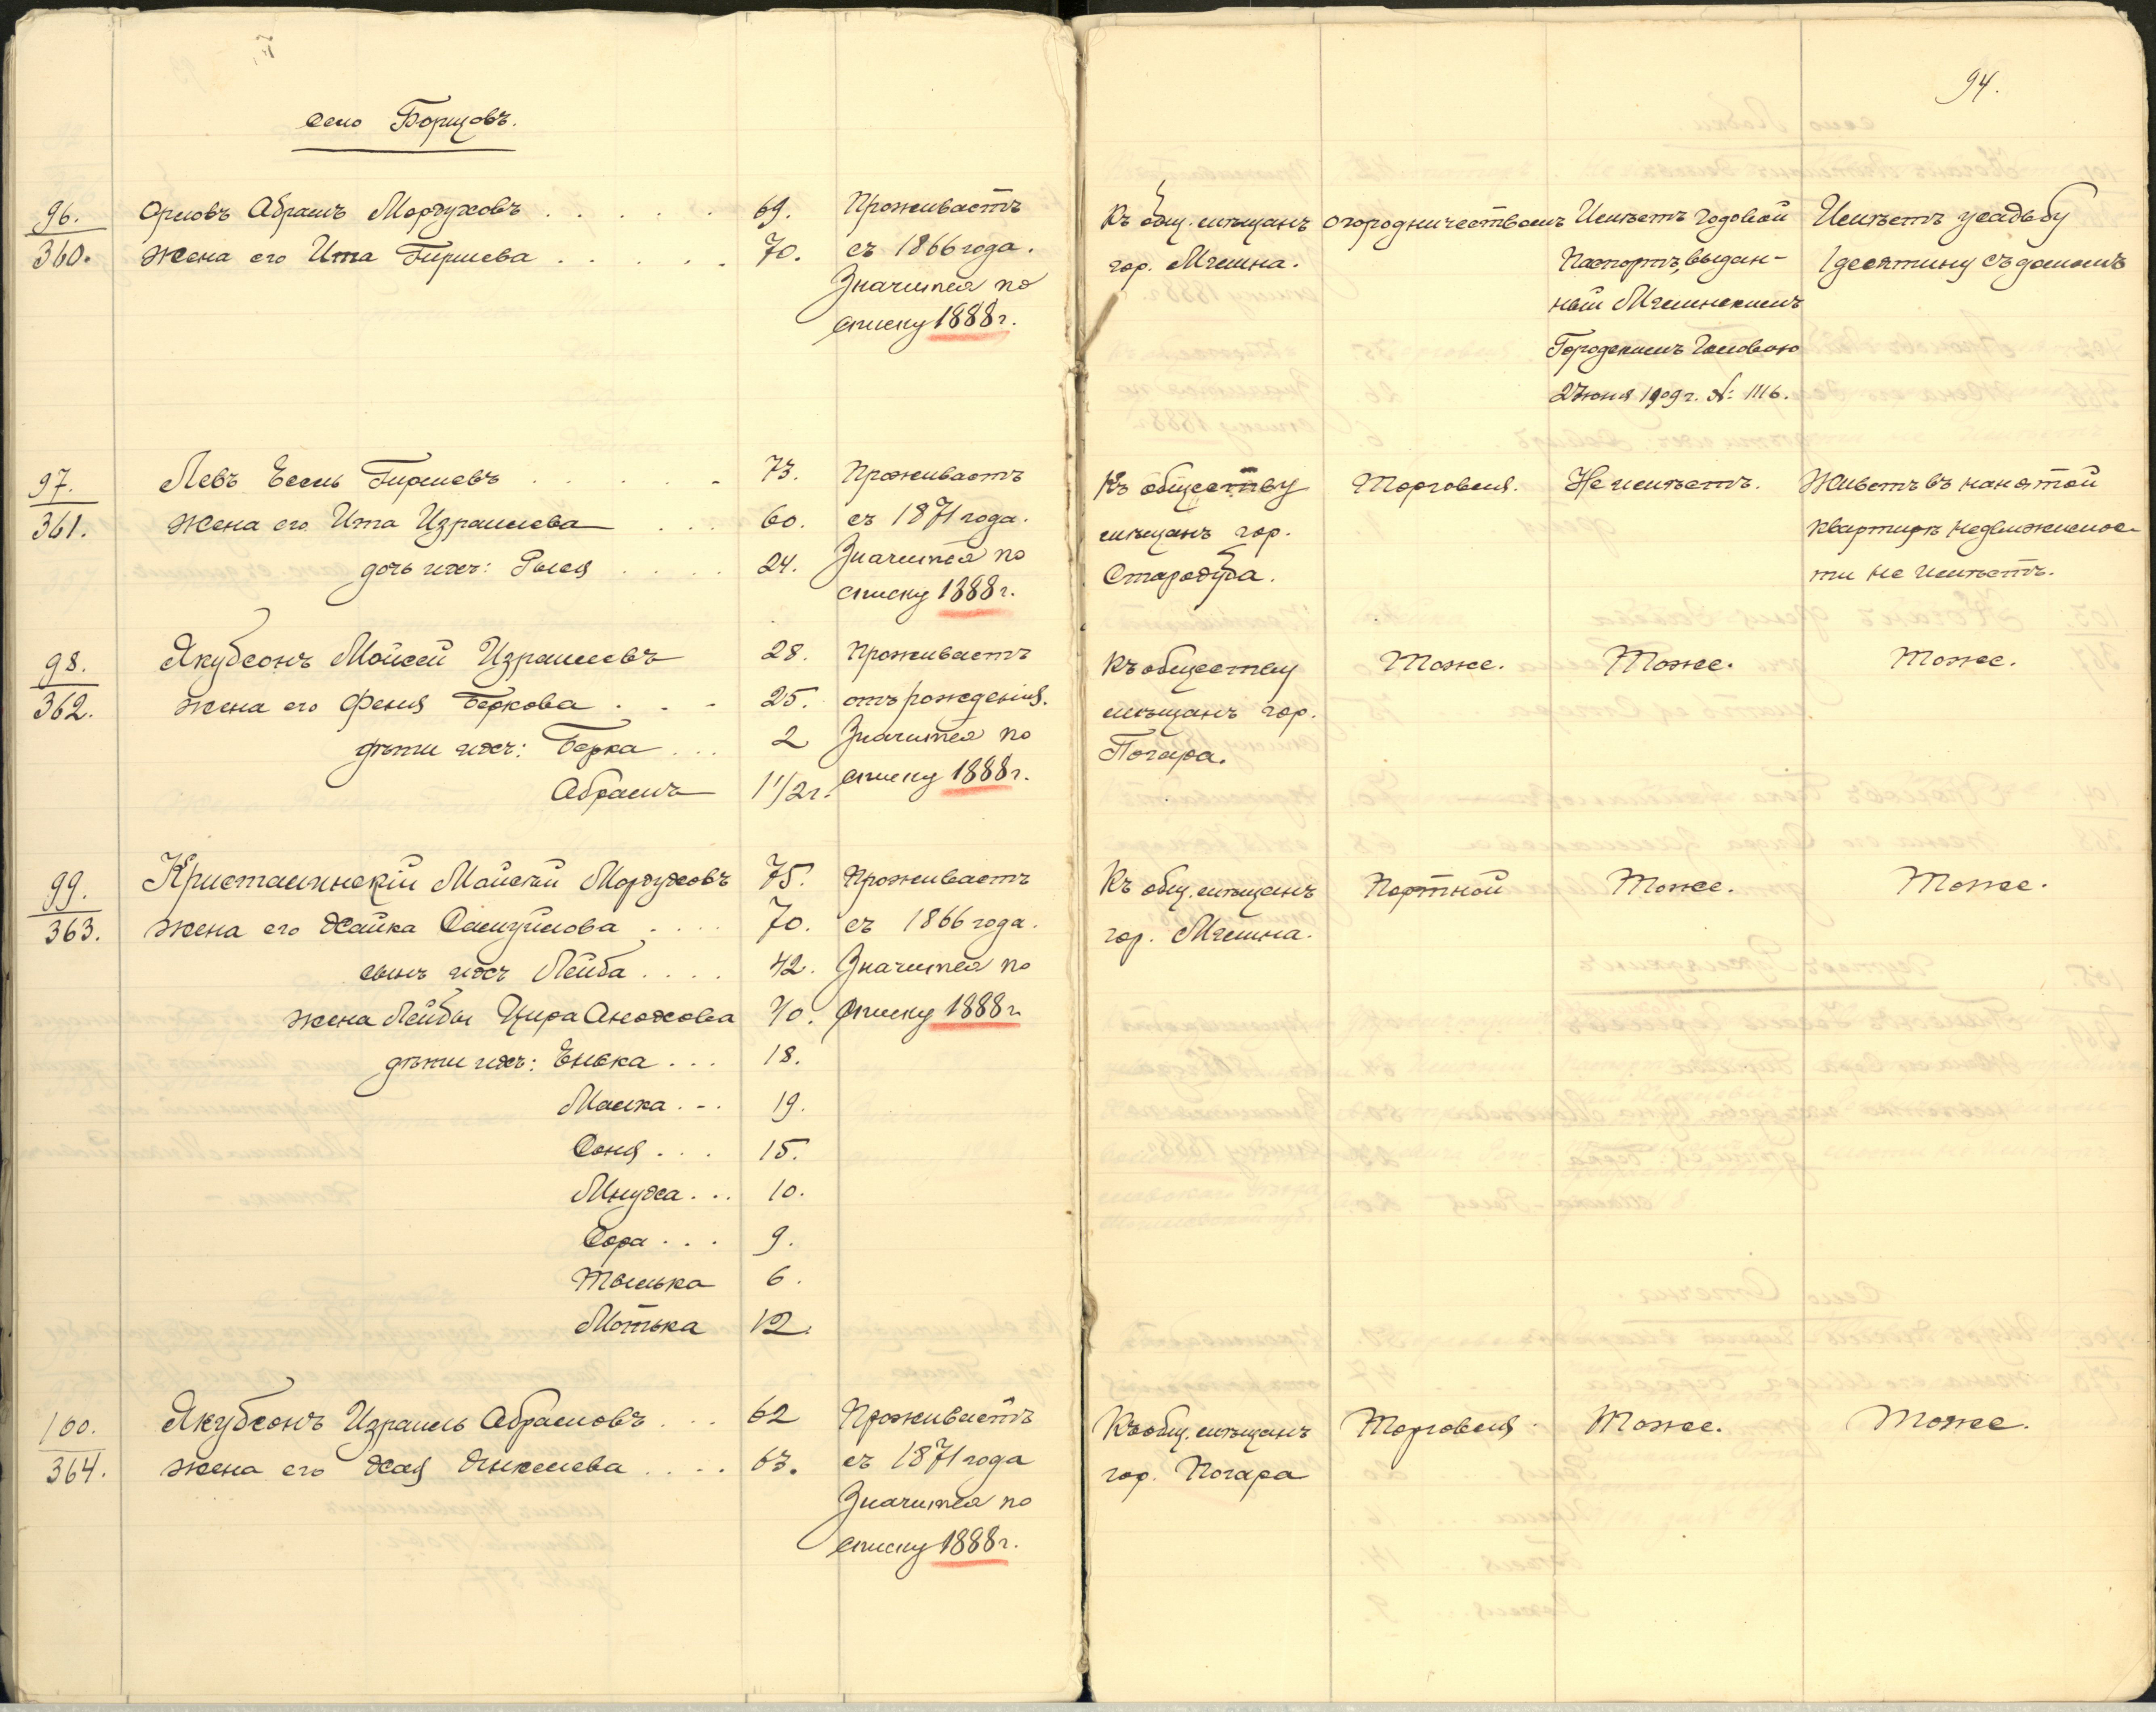 94.
село Борщовъ.
96.
360.
Орловъ Абрамъ Мордуховъ . . . . . 69.
жена его Ита Гиршева . . . . . 70.
Проживаетъ
съ 1866 года.
Значится по
списку 1888 г.
Къ общ. мѣщанъ
гор. Мглина.
огородничествомъ
Имѣетъ годовой
паспортъ, выдан-
ный Мглинскимъ
Городскимъ Головою
2 Іюня 1909 г. №: 1116.
Имѣетъ усадьбу
1 десятину съ домомъ
97.
361.
Левъ Есель Гиршевъ . . . . . 73.
жена его Ита Израилева . . . 60.
дочь ихъ: Рыся . . . . 24.
Проживаетъ
съ 1871 года.
Значится по
списку 1888 г.
Къ обществу
мѣщанъ гор.
Стародуба.
Торговля.
Не имѣетъ.
Живетъ въ нанятой
квартирѣ недвижимос-
ти не имѣетъ.
98.
362.
Якубсонъ Мойсей Израилевъ 28.
жена его Феня Беркова . . - 25.
дѣти ихъ: Берка . . . 2
Абрамъ 1 1/2 г.
Проживаетъ
отъ рожденія.
Значится по
списку 1888 г.
Къ обществу
мѣщанъ гор.
Погара.
Тоже.
Тоже.
Тоже.
99.
363.
Мойсей Мордуховъ 75.
жена его Хайка Самуйлова . . . . 70.
сынъ ихъ Лейба . . . . 42.
жена Лейбы Цира 40.
дѣти ихъ: Енька . . . 18.
Малка . . . 19.
Соня . . . 15.
Мнуха . . . 10.
Сора . . . 9.
Тылька 6.
Мотька 12.
Проживаетъ
съ 1866 года.
Значится по
списку 1888 г.
Къ общ. мѣщанъ
гор. Мглина.
Портной
Тоже.
Тоже.
100.
364.
Якубсонъ Израиль Абрамовъ . . . 62
жена его Хая Янкелева . . . . 63.
Проживаетъ
съ 1871 года
Значится по
списку 1888 г.
Къ общ. мѣщанъ
гор. Погара
Торговля.
Тоже.
Тоже.